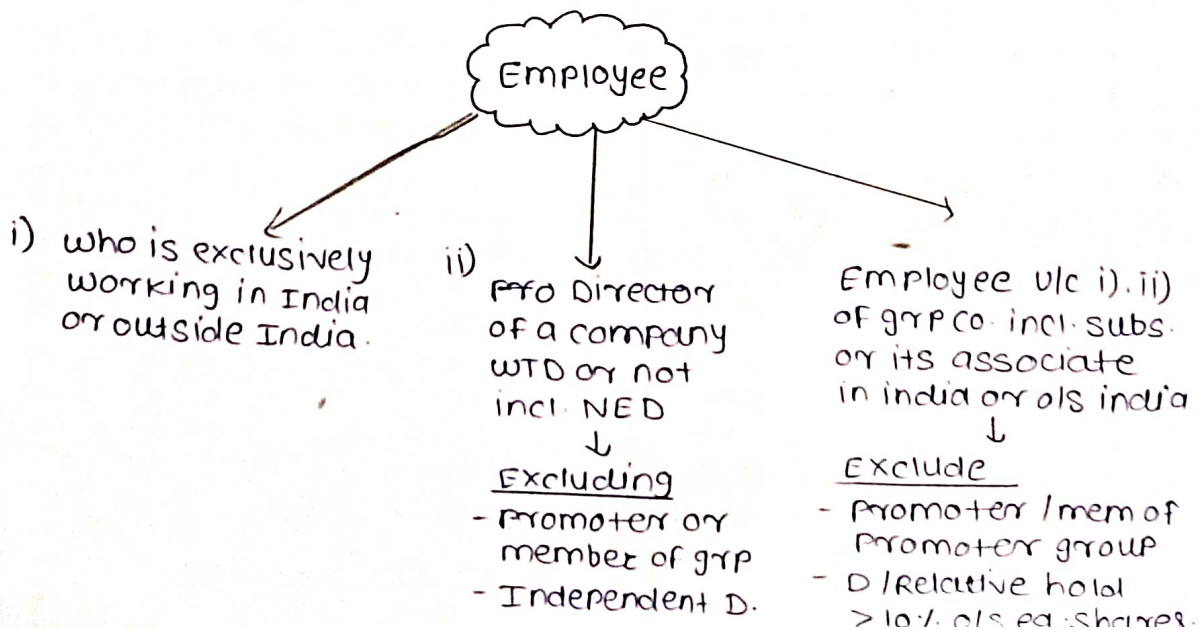 Employee
i) who is exclusively
working in India
or outside India.
ii)
Director
of a company
WTD or not
incl. NED
↓
Excluding
- promoter or
member of grp
- Independent D.
Employee u/c i). ii)
of grp co. incl. subs.
or its associate
in india or o/s india
↓
Exclude
- promoter / mem of
promoter group
- D / Relative hold
> 10% o/s eq. shares.